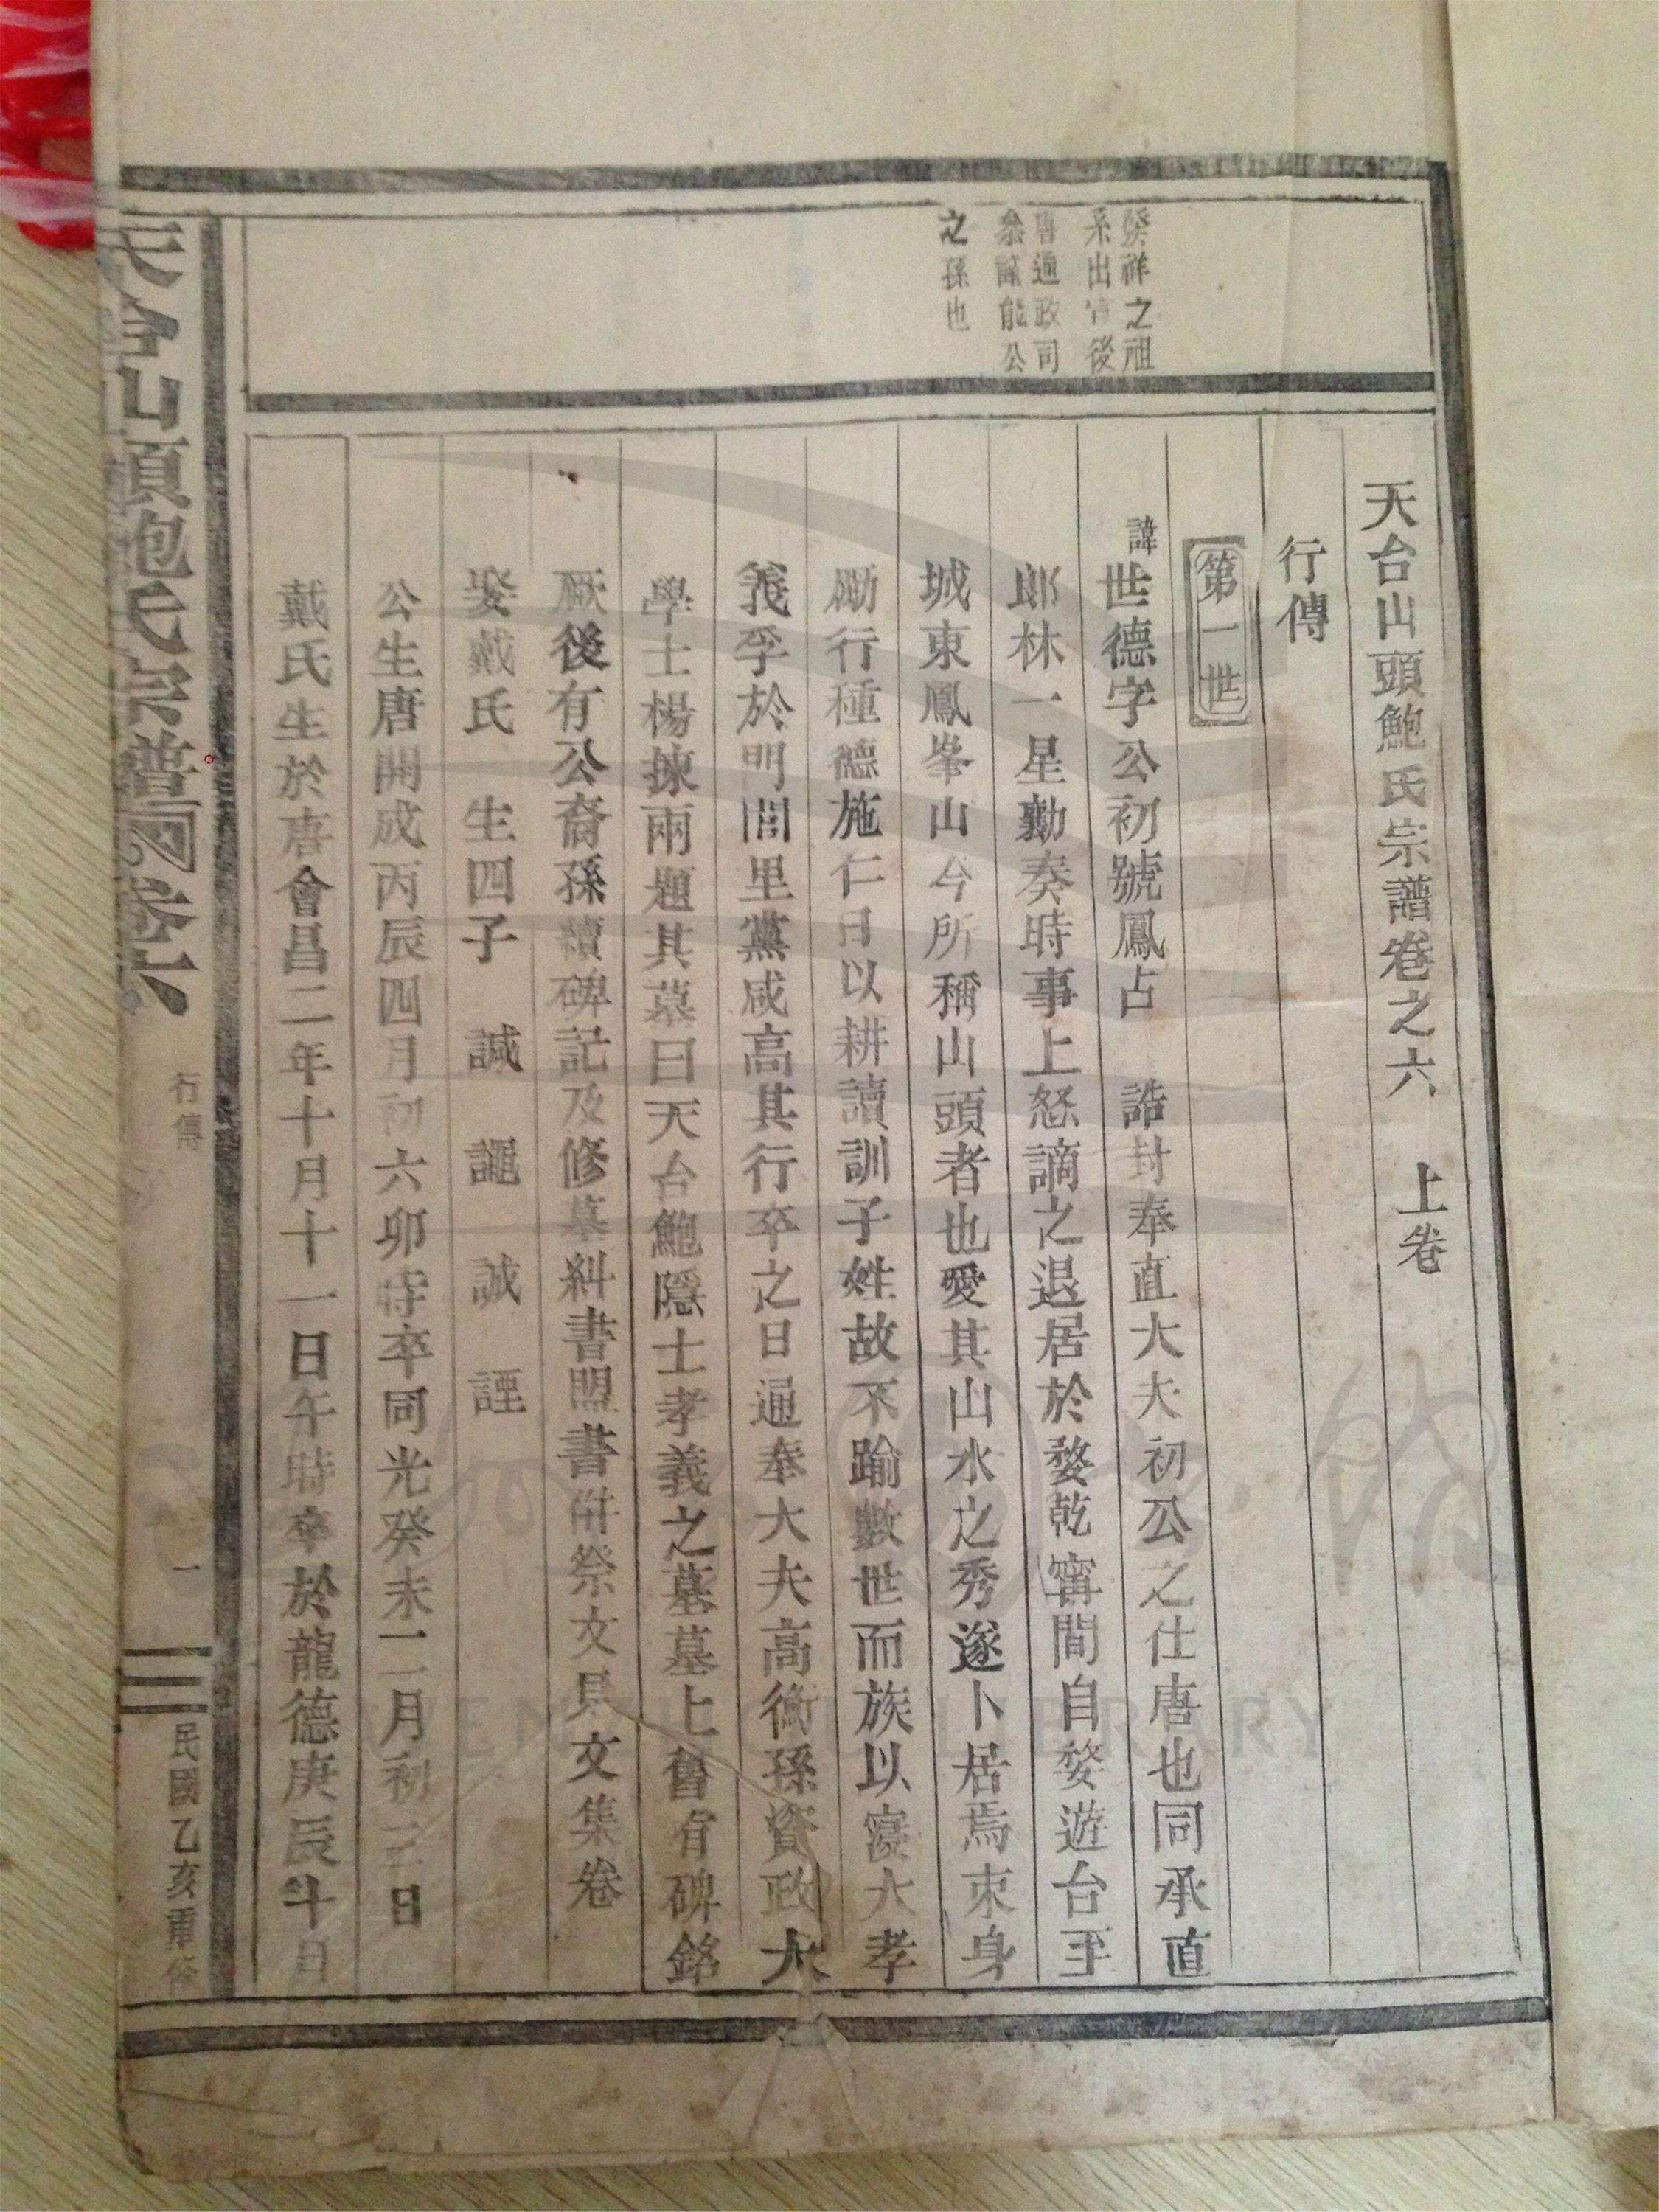 天台山頭鮑氏宗譜卷之六　上卷
行傳
第一世
系出官後
之孫也
諱世德字公初號鳳占　誥封奉直大夫初公之仕唐也同承直
郎林一星勷奏時事上怒謫之退居於婺乾窩間自婺遊台至
城東鳳峯山今所稱山頭者也愛其山水之秀遂卜居焉束身
勵行種德施仁日以耕讀訓子姓故不踰數世而族以寖大孝
義孚於明閭里黨咸高其行卒之日通奉大夫高衡孫資政大
學士楊揀兩題其墓曰天台鮑隱士孝義之墓墓上舊有碑銘
厥後有公裔孫續碑記及修墓糾書盟書併祭文見文集卷
娶戴氏　生四子　諴　譝　誠　諲
公生唐開成丙辰四月初六卯時卒同光癸未二月初三日
戴氏生於唐會昌二年十月十一日午時卒於龍德庚辰十日
天台山頭鮑氏宗譜　卷六
行傳
一
民國乙亥重修